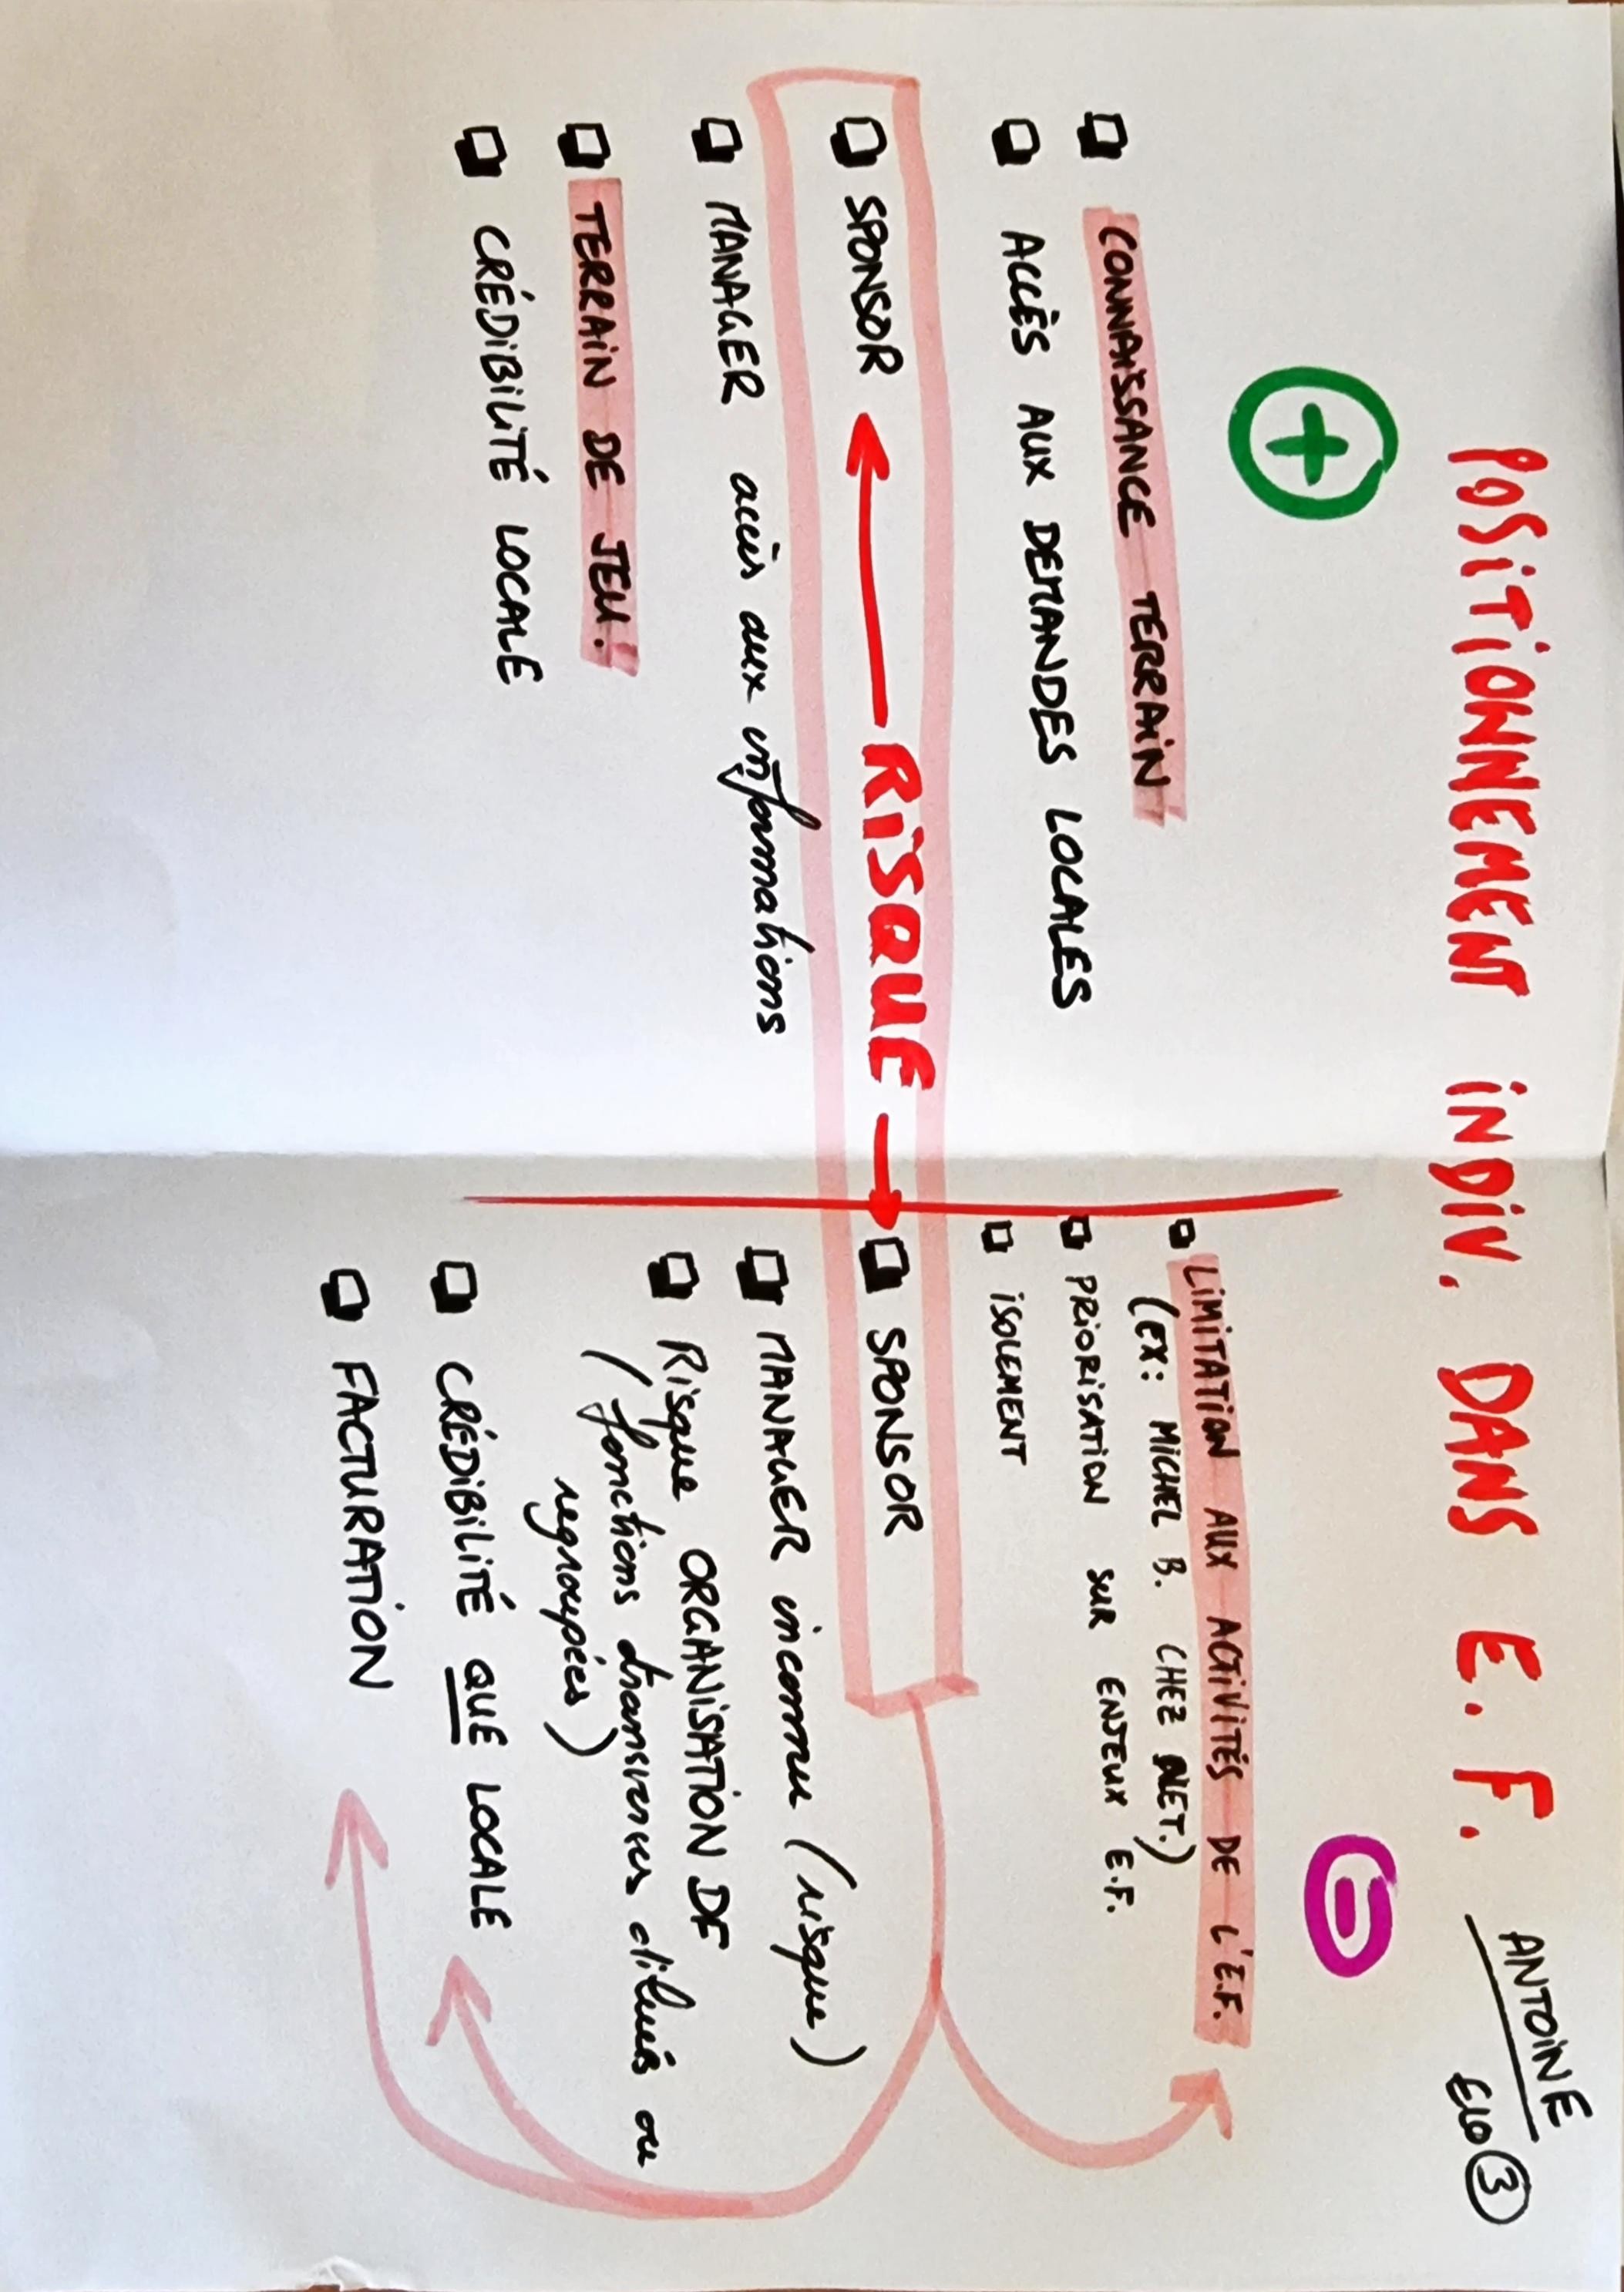 POSITIONNEMENT iNDiV. DANS E. F.
ANTOINE
③
+
CONNAISSANCE TERRAIN
ACCÈS AUX DEMANDES LOCALES
SPONSOR
RiSQUE
MANAGER accès aux informations
TERRAIN DE JEU.
CRÉDIBILITÉ LOCALE
-
LIMITATION AUX ACTIVITÉS DE L'E.F.
(EX: MICHEL B. CHEZ NET.)
PRIORISATION SUR ENJEUX E.F.
ISOLEMENT
SPONSOR
MANAGER inconnu (risque)
RISQUE ORGANISATION DF
(fonctions transverses diluées ou
regroupées)
CRÉDIBILITÉ QUE LOCALE
FACTURATION